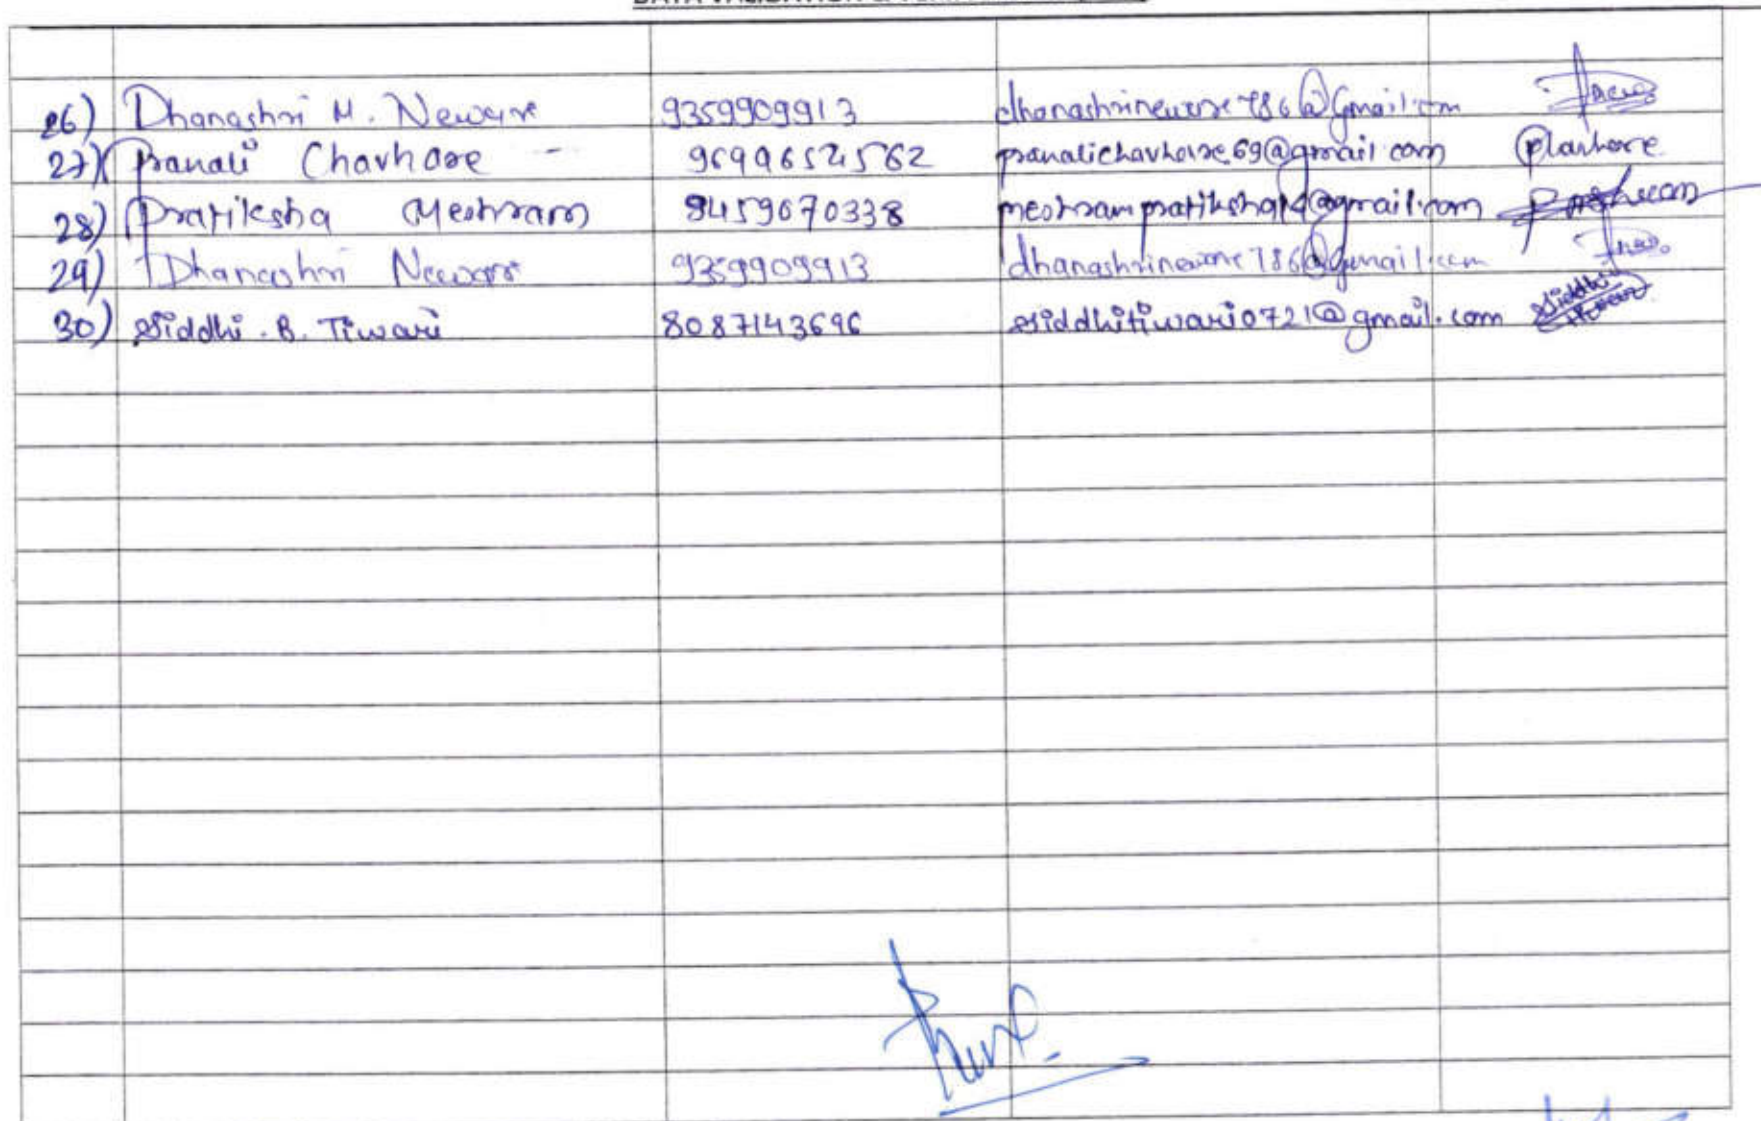 DATA VALIDATION &
26) Dhanashri M. Neware 9359909913 dhanashrineware786@Gmail.com
27) Pranali Chavhare 9699652562 pranalichavhare69@gmail.com
28) Pratiksha Meshram 9459670338 meshrampratiksha14@gmail.com
29) Dhanashri Neware 9359909913 dhanashrineware786@Gmail.com
30) Siddhi .B. Tiwari 8087143696 siddhitiwari0721@gmail.com Siddhi Tiwari